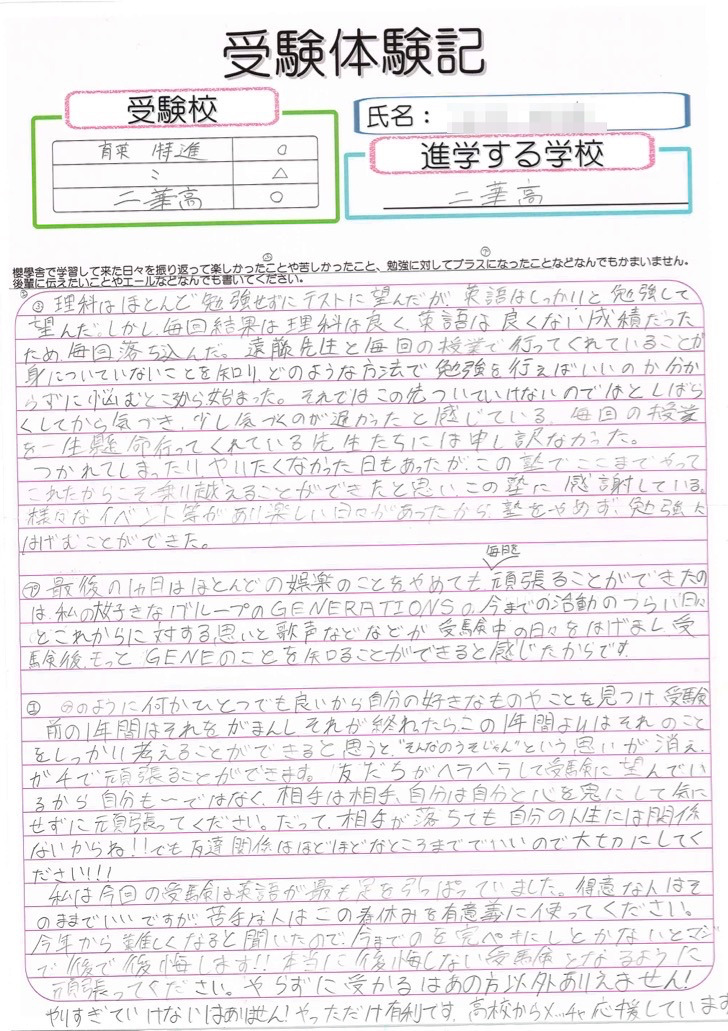 受験体験記
受験校
氏名:
育英 特進 ○
〃 △
二華高 ○
進学する学校
二華高
櫻學舎で学習して来た日々を振り返って楽しかったことや苦しかったこと、勉強に対してプラスになったことなどなんでもかまいません。
後輩に伝えたいことやエールなどなんでも書いてください。
理科はほとんど勉強せずにテストに望んだが英語はしっかりと勉強して
望んだ。しかし毎回結果は理科は良く、英語は良くない成績だった
ため毎回落ち込んだ。遠藤先生と毎回の授業で行ってくれていることが
身についていないことを知り、どのような方法で勉強を行えばいいのか分か
らずに悩むところから始まった。それではこの先ついていけないのではとしばら
くしてから気づき、少し気づくのが遅かったと感じている。毎回の授業
を一生懸命行ってくれている先生たちには申し訳なかった。
つかれてしまったりやりたくなかった日もあったが、この塾でここまでやって
これたからこそ乗り越えることができたと思い、この塾に感謝している。
様々なイベント等があり楽しい日々があったから塾をやめず、勉強に
はげむことができた。
毎日を
最後の1ヵ月はほとんどの娯楽のことをやめても頑張ることができたの
は、私の大好きなグループのGENERATIONSの、今までの活動のつらい日々
とこれからに対する思いと歌声などなどが受験中の日々をはげまし受
験後、もっとGENEのことを知ることができると感じたからです。
のように何かひとつでも良いから自分の好きなものやことを見つけ受験
前の1年間はそれをがまんしそれが終れたらこの1年間よりはそれのこと
をしっかり考えることができると思うと"そんなのうそじゃん"という思いが消え、
ガチで頑張ることができます。友だちがヘラヘラして受験に望んでい
るから自分も〜ではなく、相手は相手、自分は自分と心を鬼にして気に
せずに頑張ってください。だって、相手が落ちても自分の人生には関係
ないからね!!でも友達関係はほどほどなところまででいいので大切にしてく
ださい!!!
私は今回の受験は英語が最も足を引っぱっていました。得意な人はそ
のままでいいですが、苦手な人はこの春休みを有意義に使ってください。
今年から難しくなると聞いたので、今までのを完ペキにしとかないとマジ
で後で後悔します!!本当に後悔しない受験となるように
頑張ってください。やらずに受かるはあの方以外ありえません!
やりすぎていけないはありません!やっただけ有利です。高校からメッチャ応援しています